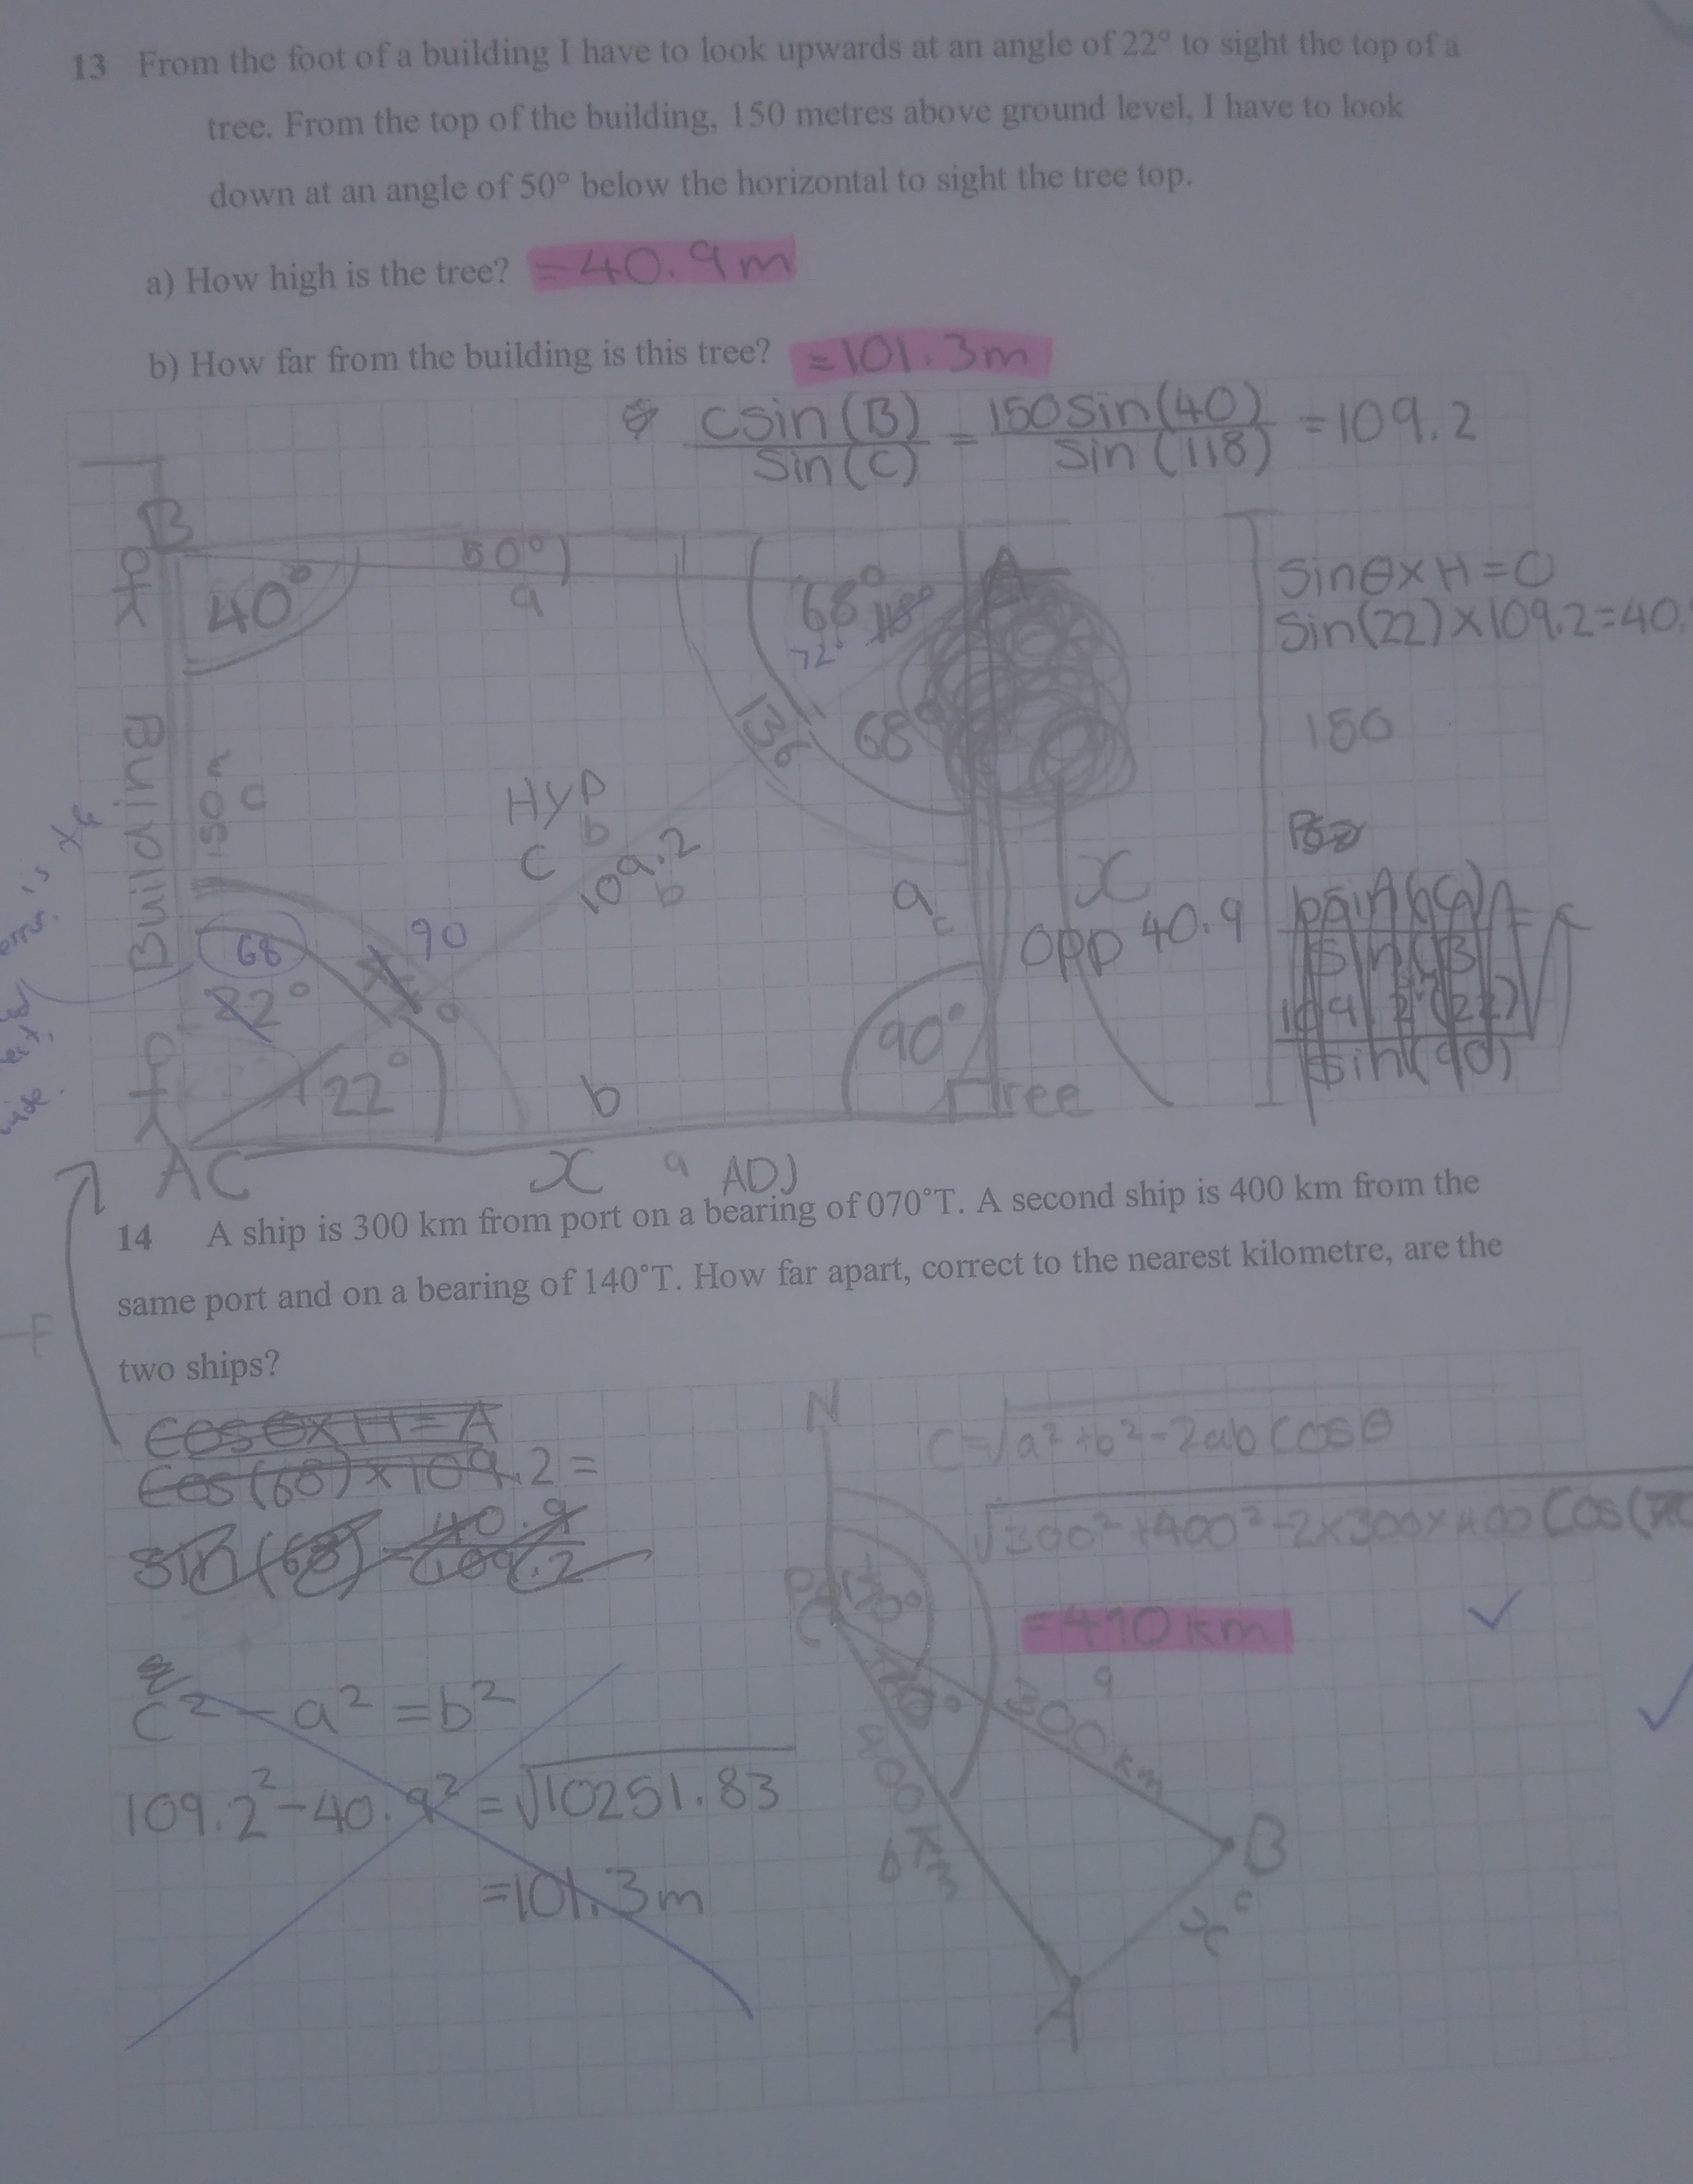 13 From the foot of a building I have to look upwards at an angle of 22° to sight the top of a
tree. From the top of the building, 150 metres above ground level, I have to look
down at an angle of 50° below the horizontal to sight the tree top.
a) How high is the tree? = 40.9m
b) How far from the building is this tree? = 101.3m
Csin(B)/Sin(C) = 150Sin(40)/Sin(118) = 109.2
B
40°
50°
a
68°
118°
72°
A
Sinθ×H=O
Sin(22)×109.2=40.
136
68°
150
Building
150m
C
Hyp
b
C
109.2
b
a
c
x
opp 40.9
90
68
22°
90°
b
Tree
AC
x
a
ADJ
14 A ship is 300 km from port on a bearing of 070°T. A second ship is 400 km from the
same port and on a bearing of 140°T. How far apart, correct to the nearest kilometre, are the
two ships?
cosθ×H=A
Cos(68)×109.2=
sin(68) = 40.9/109.2
c² - a² = b²
109.2² - 40.9² = √10251.83
= 101.3m
N
C=√a²+b²-2abCosθ
√300²+400²-2×300×400Cos(
Port
C
= 410km
a
300km
400km
b
B
c
x
A